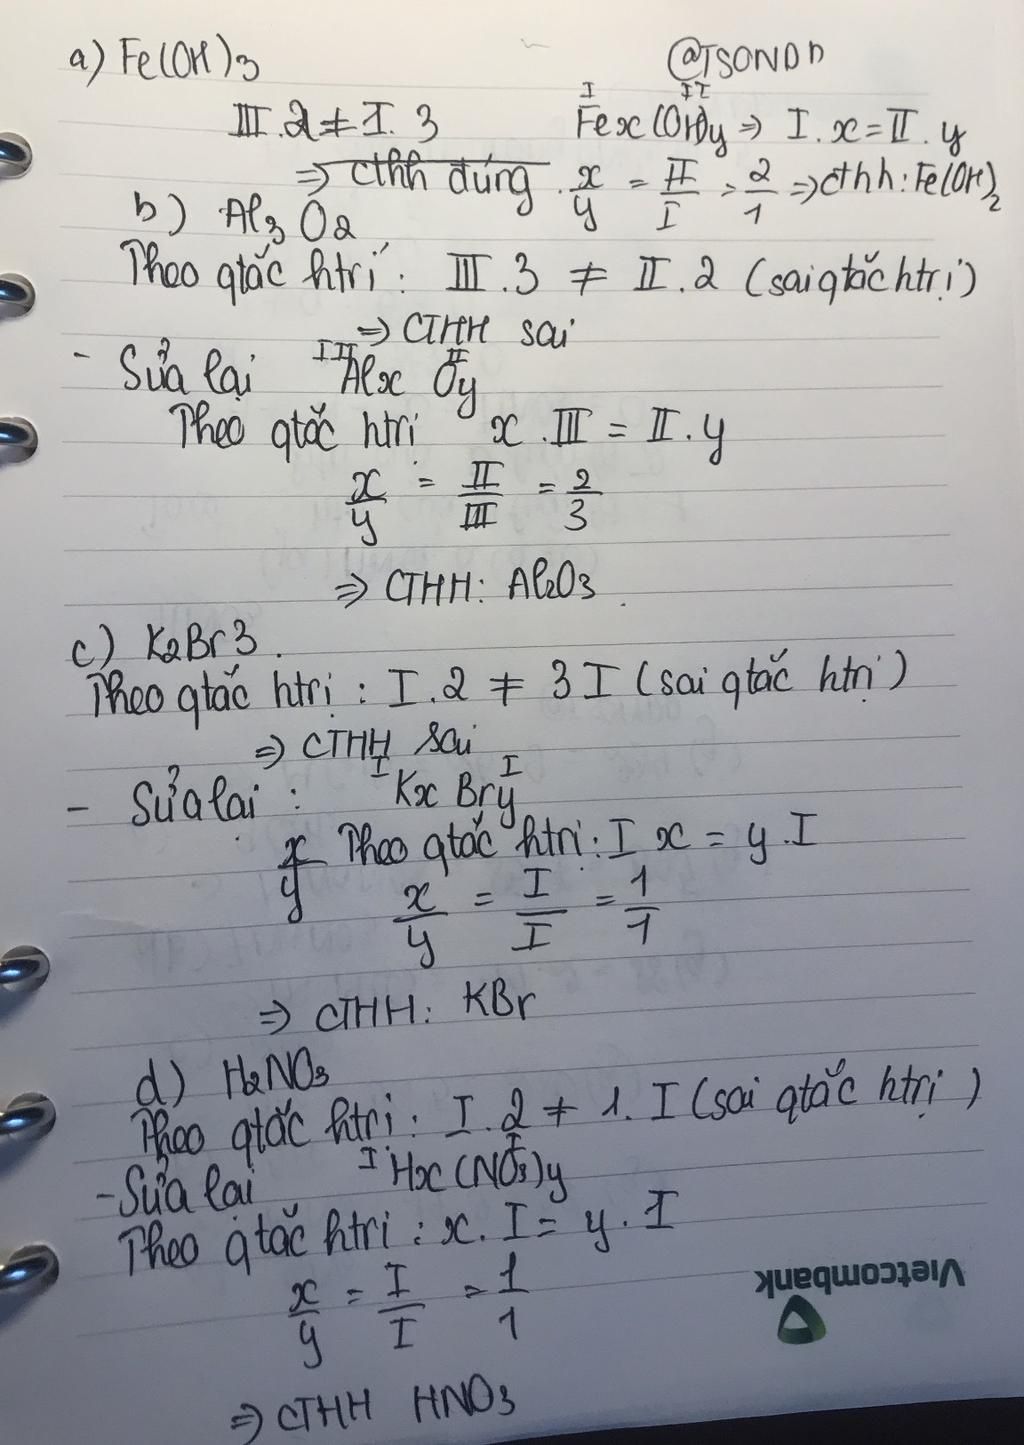 a) Fe(OH)3
@TSONDn
III.2 ≠ I.3
I II
Fex(OH)y => I.x = II.y
=> cthh đúng.
x/y = II/I = 2/1 => cthh: Fe(OH)2
b) Al3O2
Theo qtắc htrí: III.3 ≠ II.2 (sai qtắc htrị)
=> CTHH sai
- Sửa lại III II Alx Oy
Theo qtắc htri x.III = II.y
x/y = II/III = 2/3
=> CTHH: Al2O3.
c) K2Br3.
Theo qtắc htrị: I.2 ≠ 3I (sai qtắc htrị)
=> CTHH sai
- Sửa lại: I I Kx Bry
x/y Theo qtắc htri: I x = y.I
x/y = I/I = 1/1
=> CTHH: KBr
d) H2NO3
Theo qtắc htri: I.2 ≠ 1.I (sai qtắc htrị)
- Sửa lại I I Hx(NO3)y
Theo qtắc htri: x.I = y.I
x/y = I/I = 1/1
=> CTHH HNO3
Vietcombank